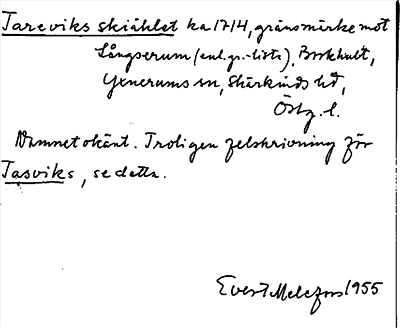 Tareviks skiählet ka 1714, gränsmärke mot
Långserum (enl. gr.-lista), Borkhult,
Yxnerums sn, Skärkinds hd,
Östg. l.
Namnet okänt. Troligen felskrivning för
Tasviks, se detta.
Evert Melefors 1955